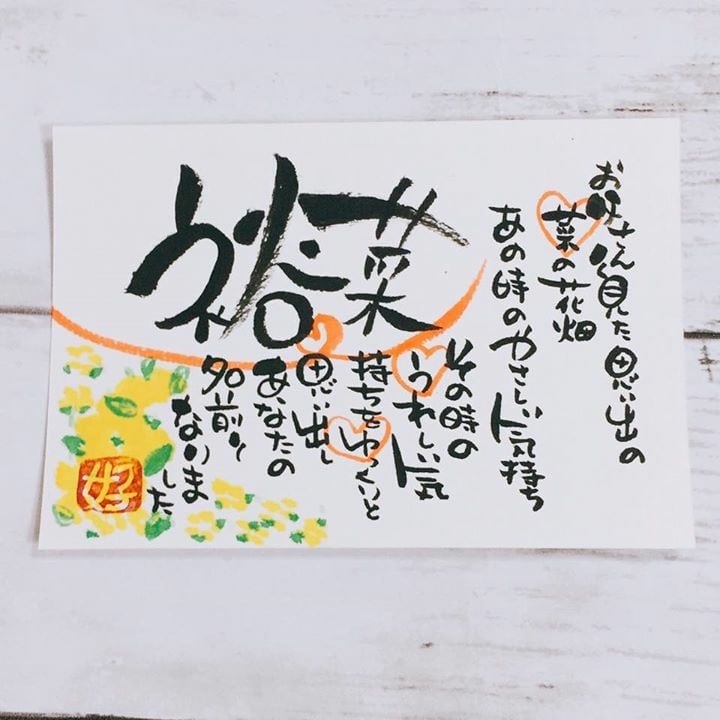 裕菜
お さん 見た思い出の
菜の花畑
あの時のやさしい気持ち
その時の
うれしい気
持ちをゆっくりと
思い出し
あなたの
名前に
なりました
好